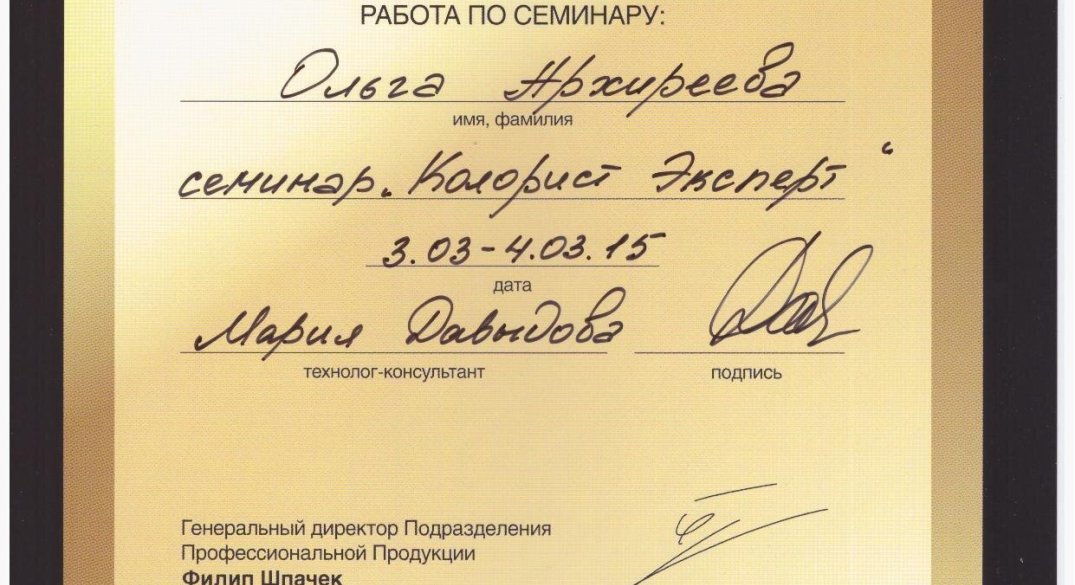 РАБОТА ПО СЕМИНАРУ:
Ольга Архиреева
имя, фамилия
семинар „Колорист Эксперт“
3.03-4.03.15
дата
Мария Давыдова
технолог-консультант
подпись
Генеральный директор Подразделения
Профессиональной Продукции
Филип Шпачек